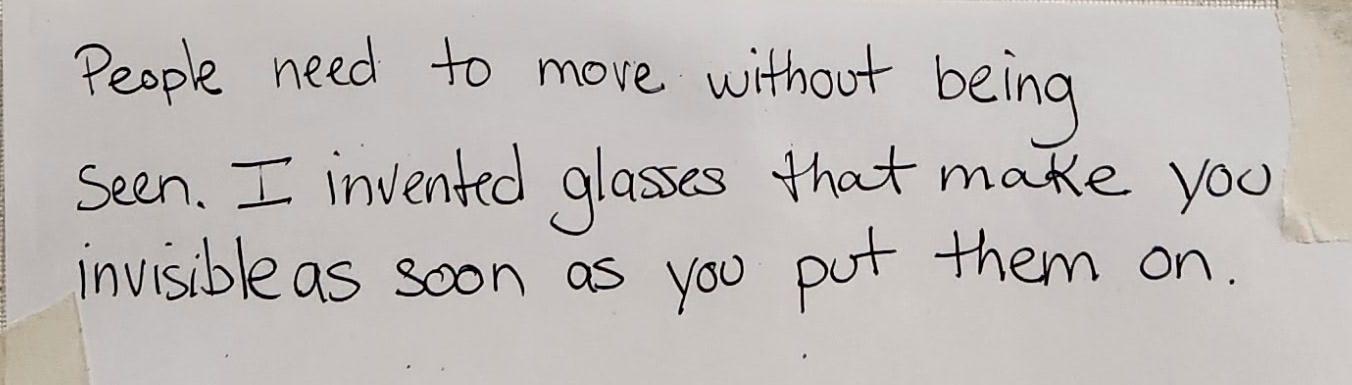 People need to move without being
seen. I invented glasses that make you
invisible as soon as you put them on.